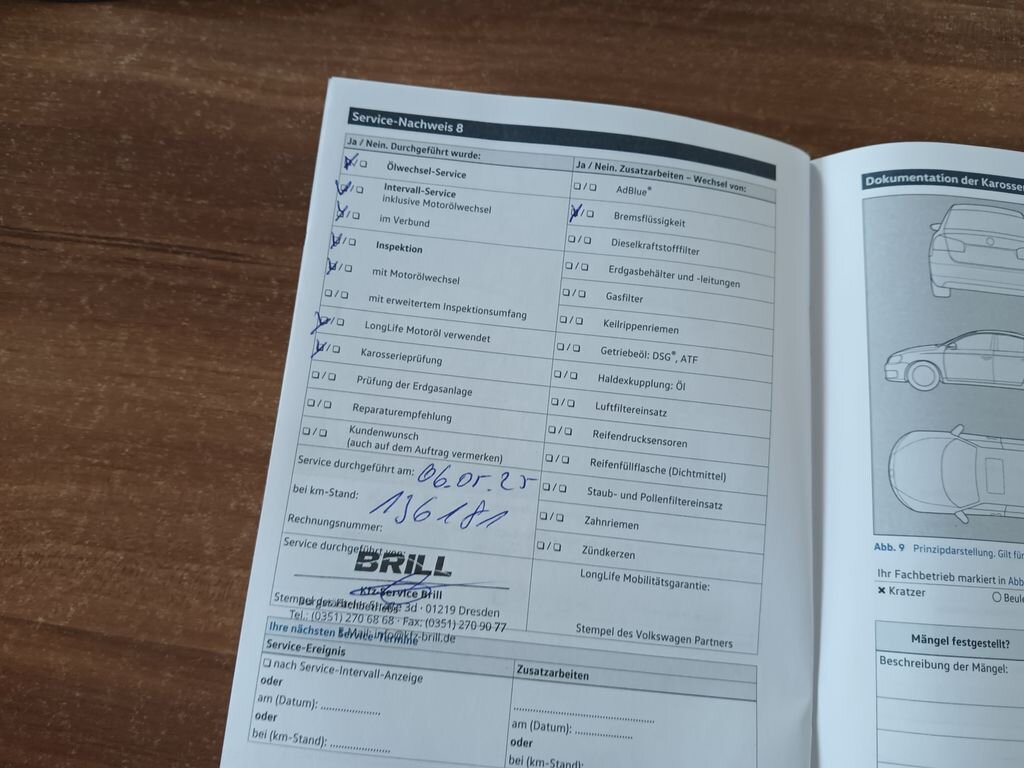 Service-Nachweis 8
Ja / Nein. Durchgeführt wurde:
❑/❑ Ölwechsel-Service
❑/❑ Intervall-Service
inklusive Motorölwechsel
❑/❑ im Verbund
❑/❑ Inspektion
❑/❑ mit Motorölwechsel
❑/❑ mit erweitertem Inspektionsumfang
❑/❑ LongLife Motoröl verwendet
❑/❑ Karosserieprüfung
❑/❑ Prüfung der Erdgasanlage
❑/❑ Reparaturempfehlung
❑/❑ Kundenwunsch
(auch auf dem Auftrag vermerken)
Service durchgeführt am: 06.05.25
bei km-Stand: 136181
Rechnungsnummer:
Service durchgeführt von:
BRILL
Kfz-Service Brill
3d · 01219 Dresden
Tel.: (0351) 270 68 68 · Fax: (0351) 270 90 77
E-Mail: info@kfz-brill.de
Stempel des Fachbetriebs
Ja / Nein. Zusatzarbeiten – Wechsel von:
❑/❑ AdBlue®
❑/❑ Bremsflüssigkeit
❑/❑ Dieselkraftstofffilter
❑/❑ Erdgasbehälter und -leitungen
❑/❑ Gasfilter
❑/❑ Keilrippenriemen
❑/❑ Getriebeöl: DSG®, ATF
❑/❑ Haldexkupplung: Öl
❑/❑ Luftfiltereinsatz
❑/❑ Reifendrucksensoren
❑/❑ Reifenfüllflasche (Dichtmittel)
❑/❑ Staub- und Pollenfiltereinsatz
❑/❑ Zahnriemen
❑/❑ Zündkerzen
LongLife Mobilitätsgarantie:
Stempel des Volkswagen Partners
Ihre nächsten Service-Termine
Service-Ereignis
❑ nach Service-Intervall-Anzeige
oder
am (Datum): ....................
oder
bei (km-Stand): ....................
Zusatzarbeiten
..............................................
am (Datum): ...................
oder
bei (km-Stand):
Dokumentation der Karosser
Abb. 9 Prinzipdarstellung. Gilt für
Ihr Fachbetrieb markiert in Abb
✖ Kratzer
○ Beule
Mängel festgestellt?
Beschreibung der Mängel: